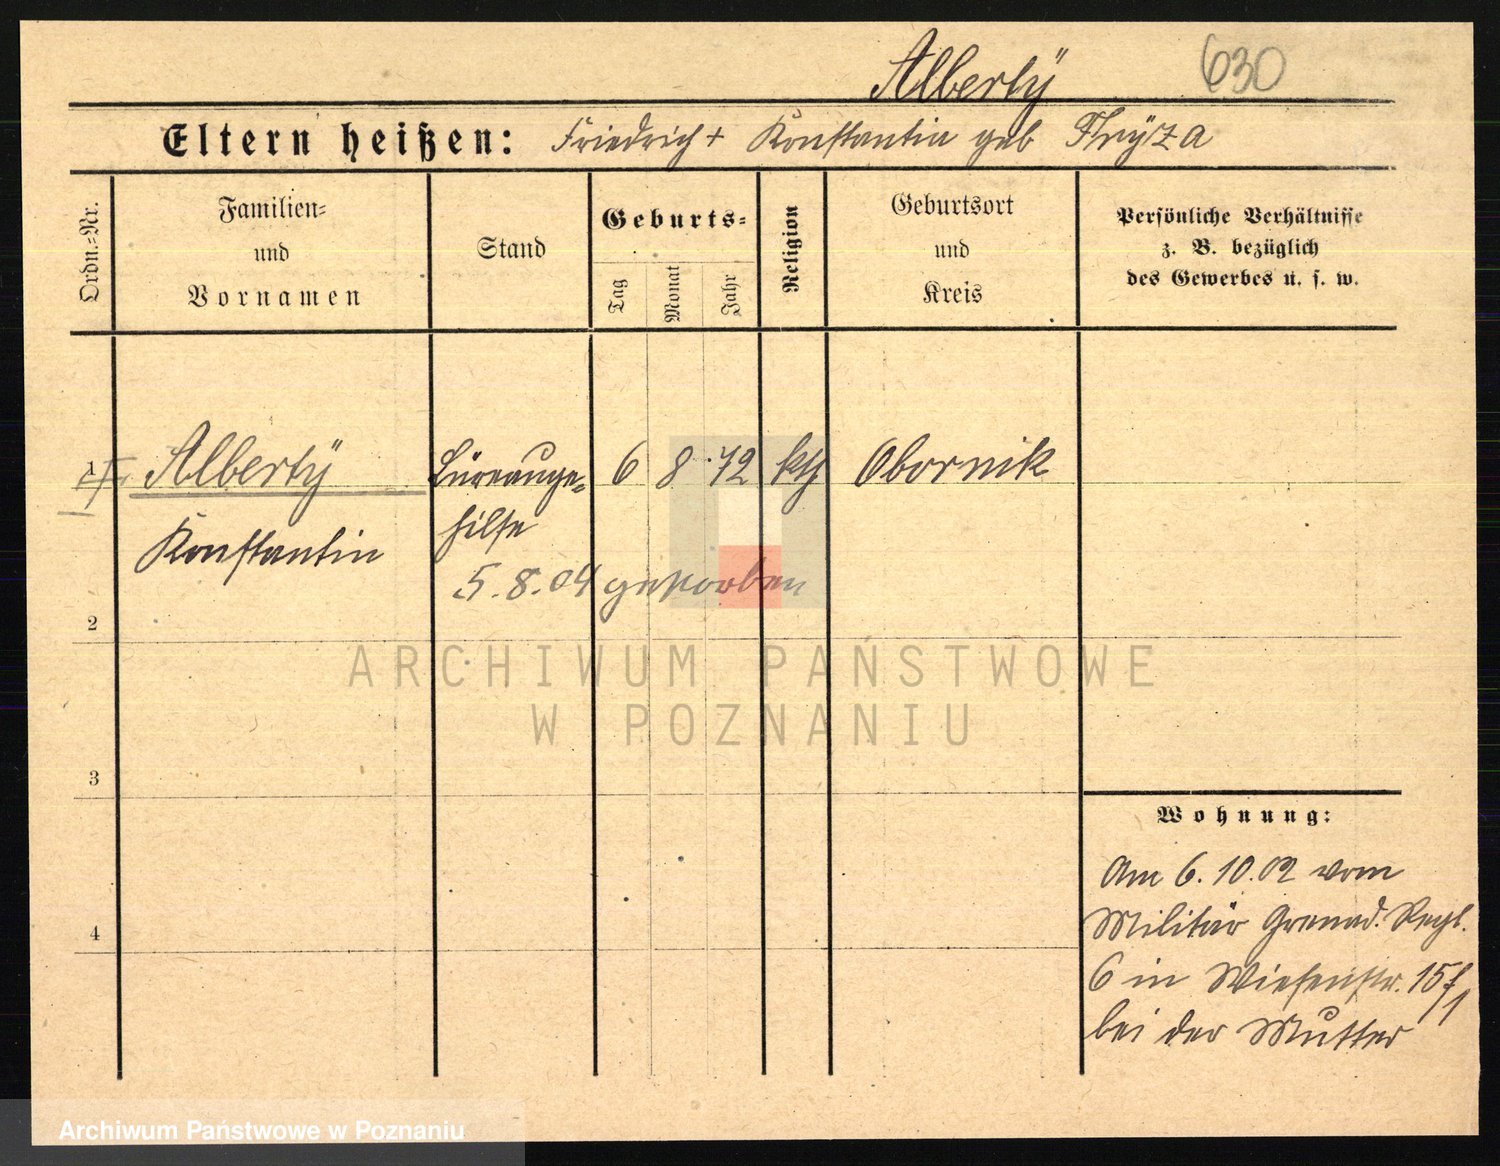 Albertÿ 630
Eltern heißen: Friedrich + Konstantia geb Thrÿza
Ordn.=Nr.
Familien=
und
Vornamen
Stand
Geburts=
Tag
Monat
Jahr
Religion
Geburtsort
und
Kreis
Persönliche Verhältnisse
z. B. bezüglich
des Gewerbes u. s. w.
1 Albertÿ Büreauge= 6 8 72 kth Obornik
Konstantin hilfe
5.8.04 gestorben
2
3
4
Wohnung:
Am 6.10.02 vom
Militär Grenad. Regt.
6 in Wiesenstr. 15f/1
bei der Mutter
ARCHIWUM PAŃSTWOWE
W POZNANIU
Archiwum Państwowe w Poznaniu